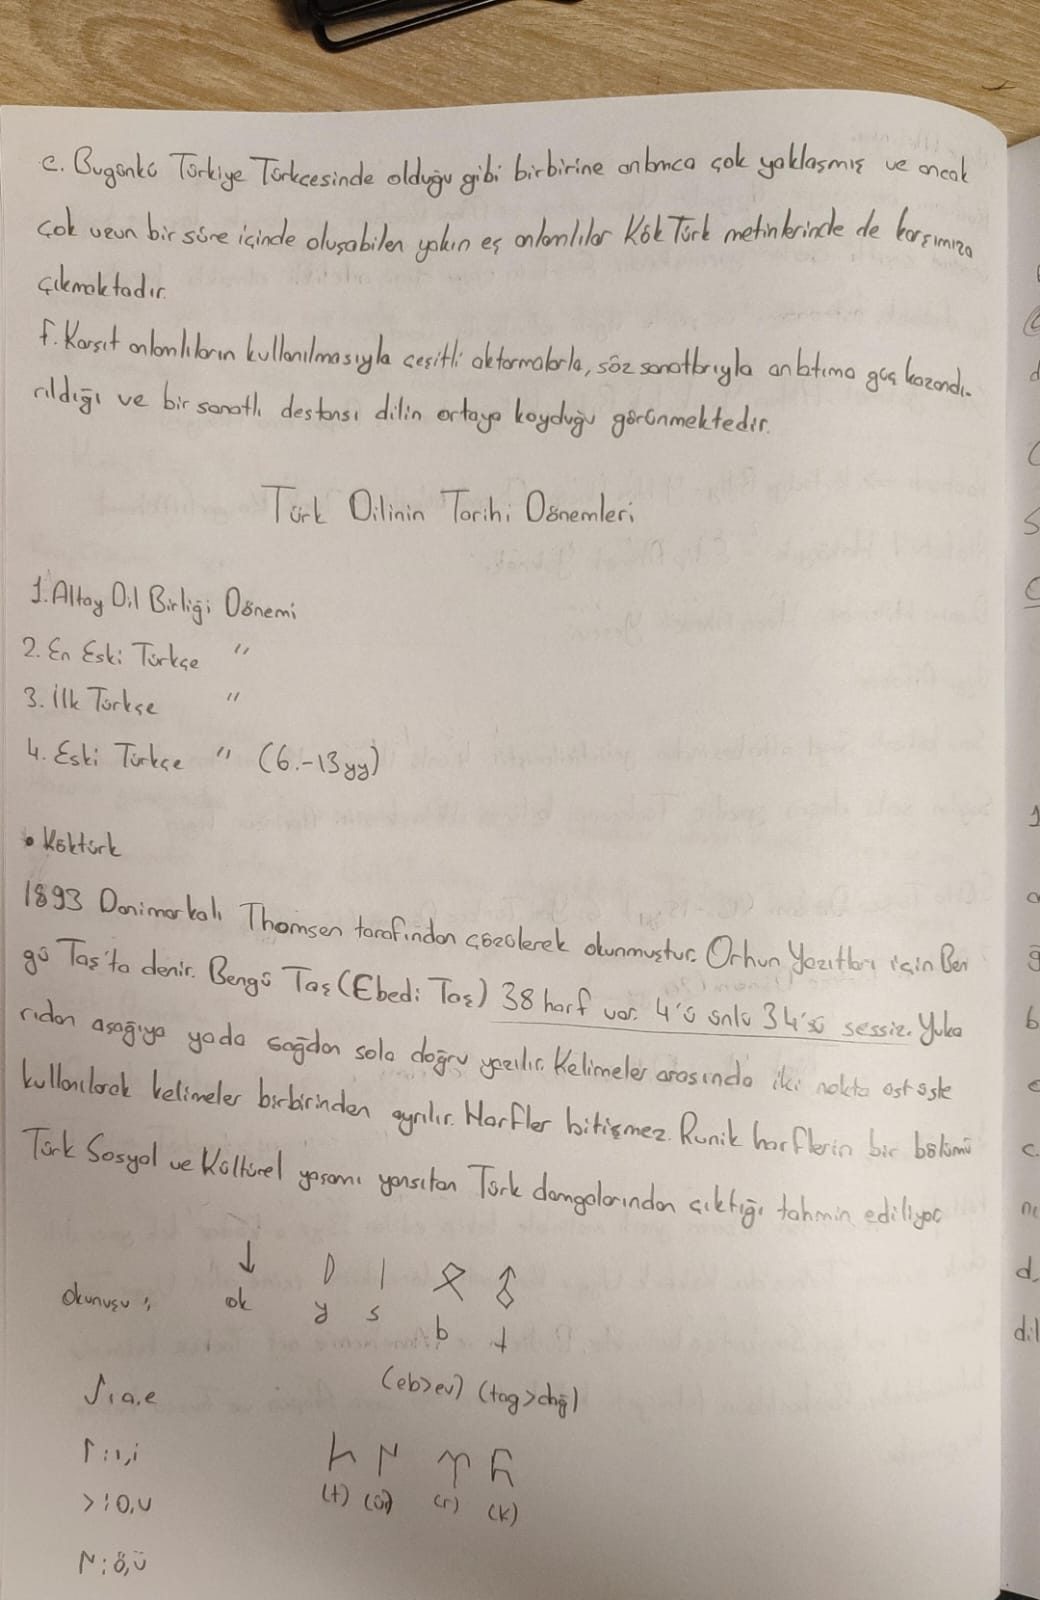 e. Bugünkü Türkiye Türkçesinde olduğu gibi birbirine anlamca çok yaklaşmış ve ancak
çok uzun bir süre içinde oluşabilen yakın eş anlamlılar Kök Türk metinlerinde de karşımıza
çıkmaktadır.
f. Karşıt anlamlıların kullanılmasıyla çeşitli aktarmalarla, söz sanatlarıyla anlatıma güç kazandı-
rıldığı ve bir sanatlı destansı dilin ortaya koyduğu görünmektedir.
Türk Dilinin Tarihi Dönemleri
1. Altay Dil Birliği Dönemi
2. En Eski Türkçe "
3. İlk Türkçe "
4. Eski Türkçe " (6.-13yy)
• Köktürk
1893 Danimarkalı Thomsen tarafından çözülerek okunmuştur. Orhun Yazıtları için Ben
gü Taş'ta denir. Bengü Taş (Ebedi Taş) 38 harf var. 4'ü ünlü 34'sü sessiz. Yuka
rıdan aşağıya yada sağdan sola doğru yazılır. Kelimeler arasında iki nokta üst üste
kullanılarak kelimeler birbirinden ayrılır. Harfler bitişmez. Runik harflerin bir bölümü
Türk Sosyal ve Kültürel yaşamı yansıtan Türk damgalarından çıktığı tahmin ediliyor
okunuşu : ok y s b t
(eb>ev) (tag>dağ)
: a,e
: ı,i
(t) (ü) (r) (k)
> : o,u
: ö,ü